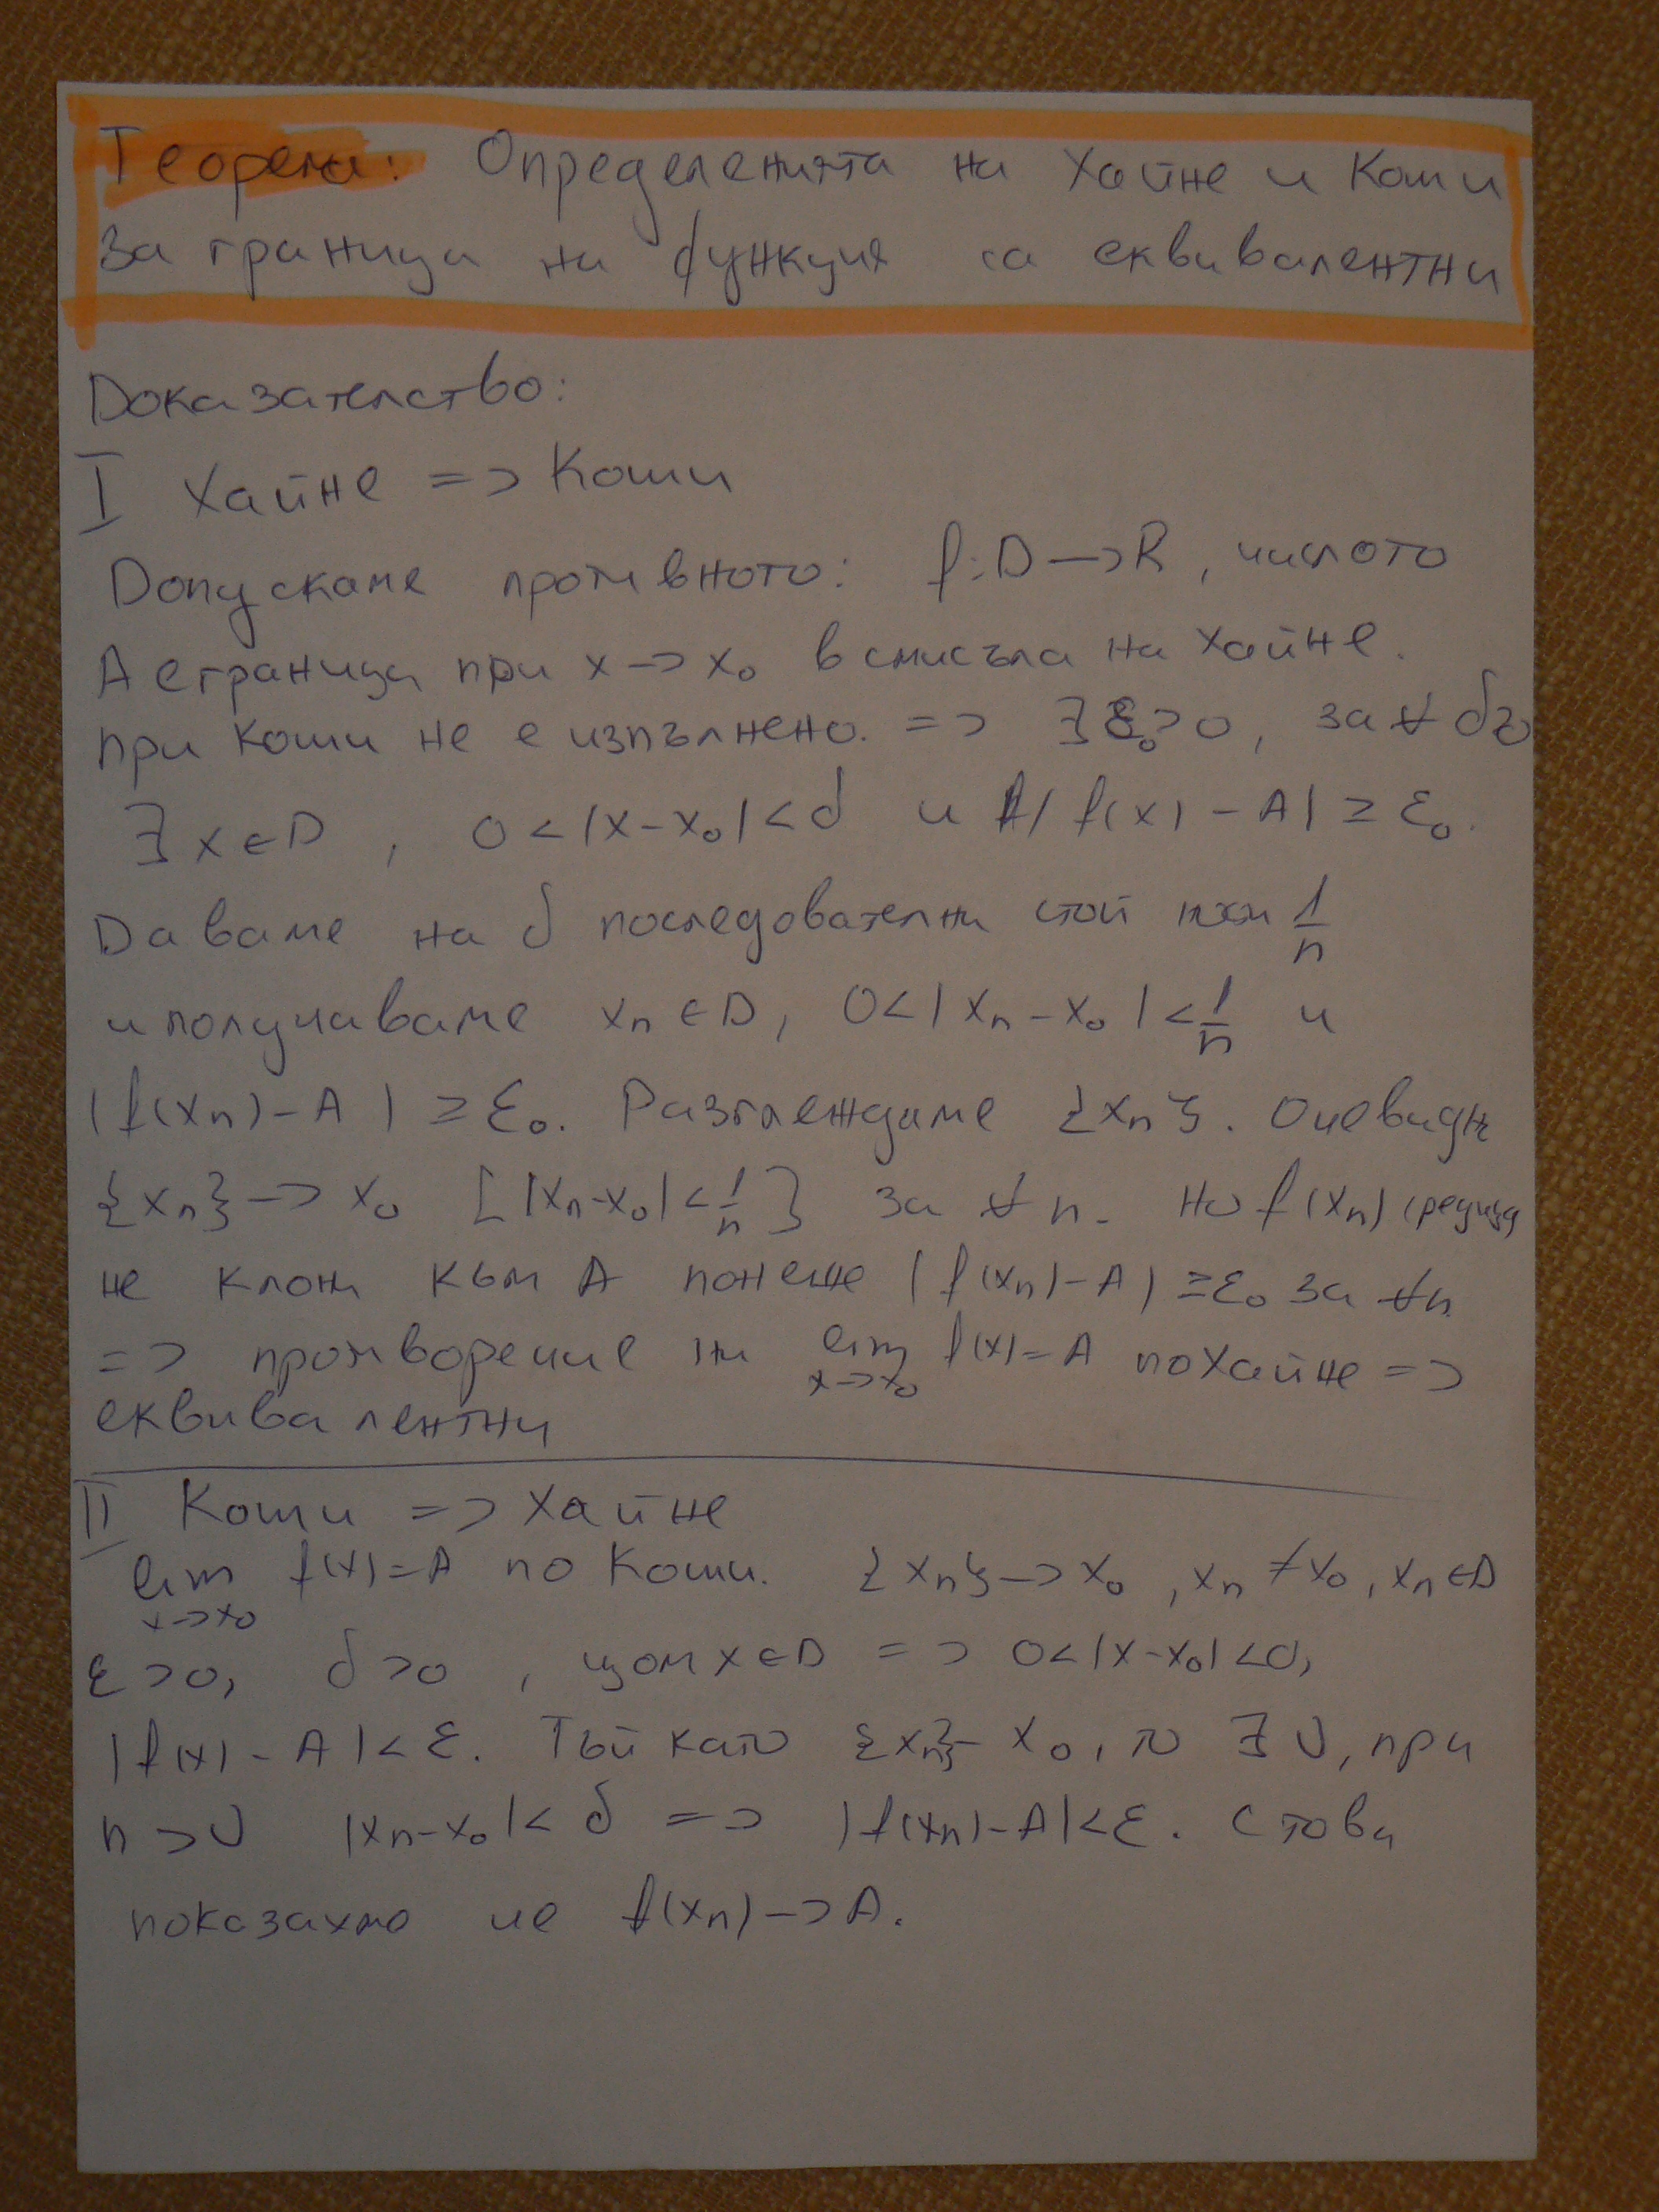 Теорема: Определенията на Хайне и Коши
за граница на функция са еквивалентни
Доказателство:
I Хайне => Коши
Допускаме противното: f: D → R, числото
A е граница при x → x₀ в смисъла на Хайне.
при Коши не е изпълнено. => ∃ ε₀ > 0, за ∀ δ>0
∃ x ∈ D, 0 < |x - x₀| < δ и |f(x) - A| ≥ ε₀.
Даваме на δ последователни 1/n
и получаваме xₙ ∈ D, 0 < |xₙ - x₀| < 1/n и
|f(xₙ) - A| ≥ ε₀. Разглеждаме {xₙ}. Очевидн
{xₙ} → x₀ [|xₙ - x₀| < 1/n} за ∀ n. Но f(xₙ)
не клони към A понеже |f(xₙ) - A| ≥ ε₀ за ∀n
=> противоречие lim f(x) = A по Хайне =>
x → x₀
еквивалентни
II Коши => Хайне
lim f(x) = A по Коши. {xₙ} → x₀, xₙ ≠ x₀, xₙ ∈ D
x → x₀
ε > 0, δ > 0, щом x ∈ D => 0 < |x - x₀| < δ,
|f(x) - A| < ε. Тъй като {xₙ} - x₀, то ∃ ν, при
n > ν |xₙ - x₀| < δ => |f(xₙ) - A| < ε. С това
показахме че f(xₙ) → A.